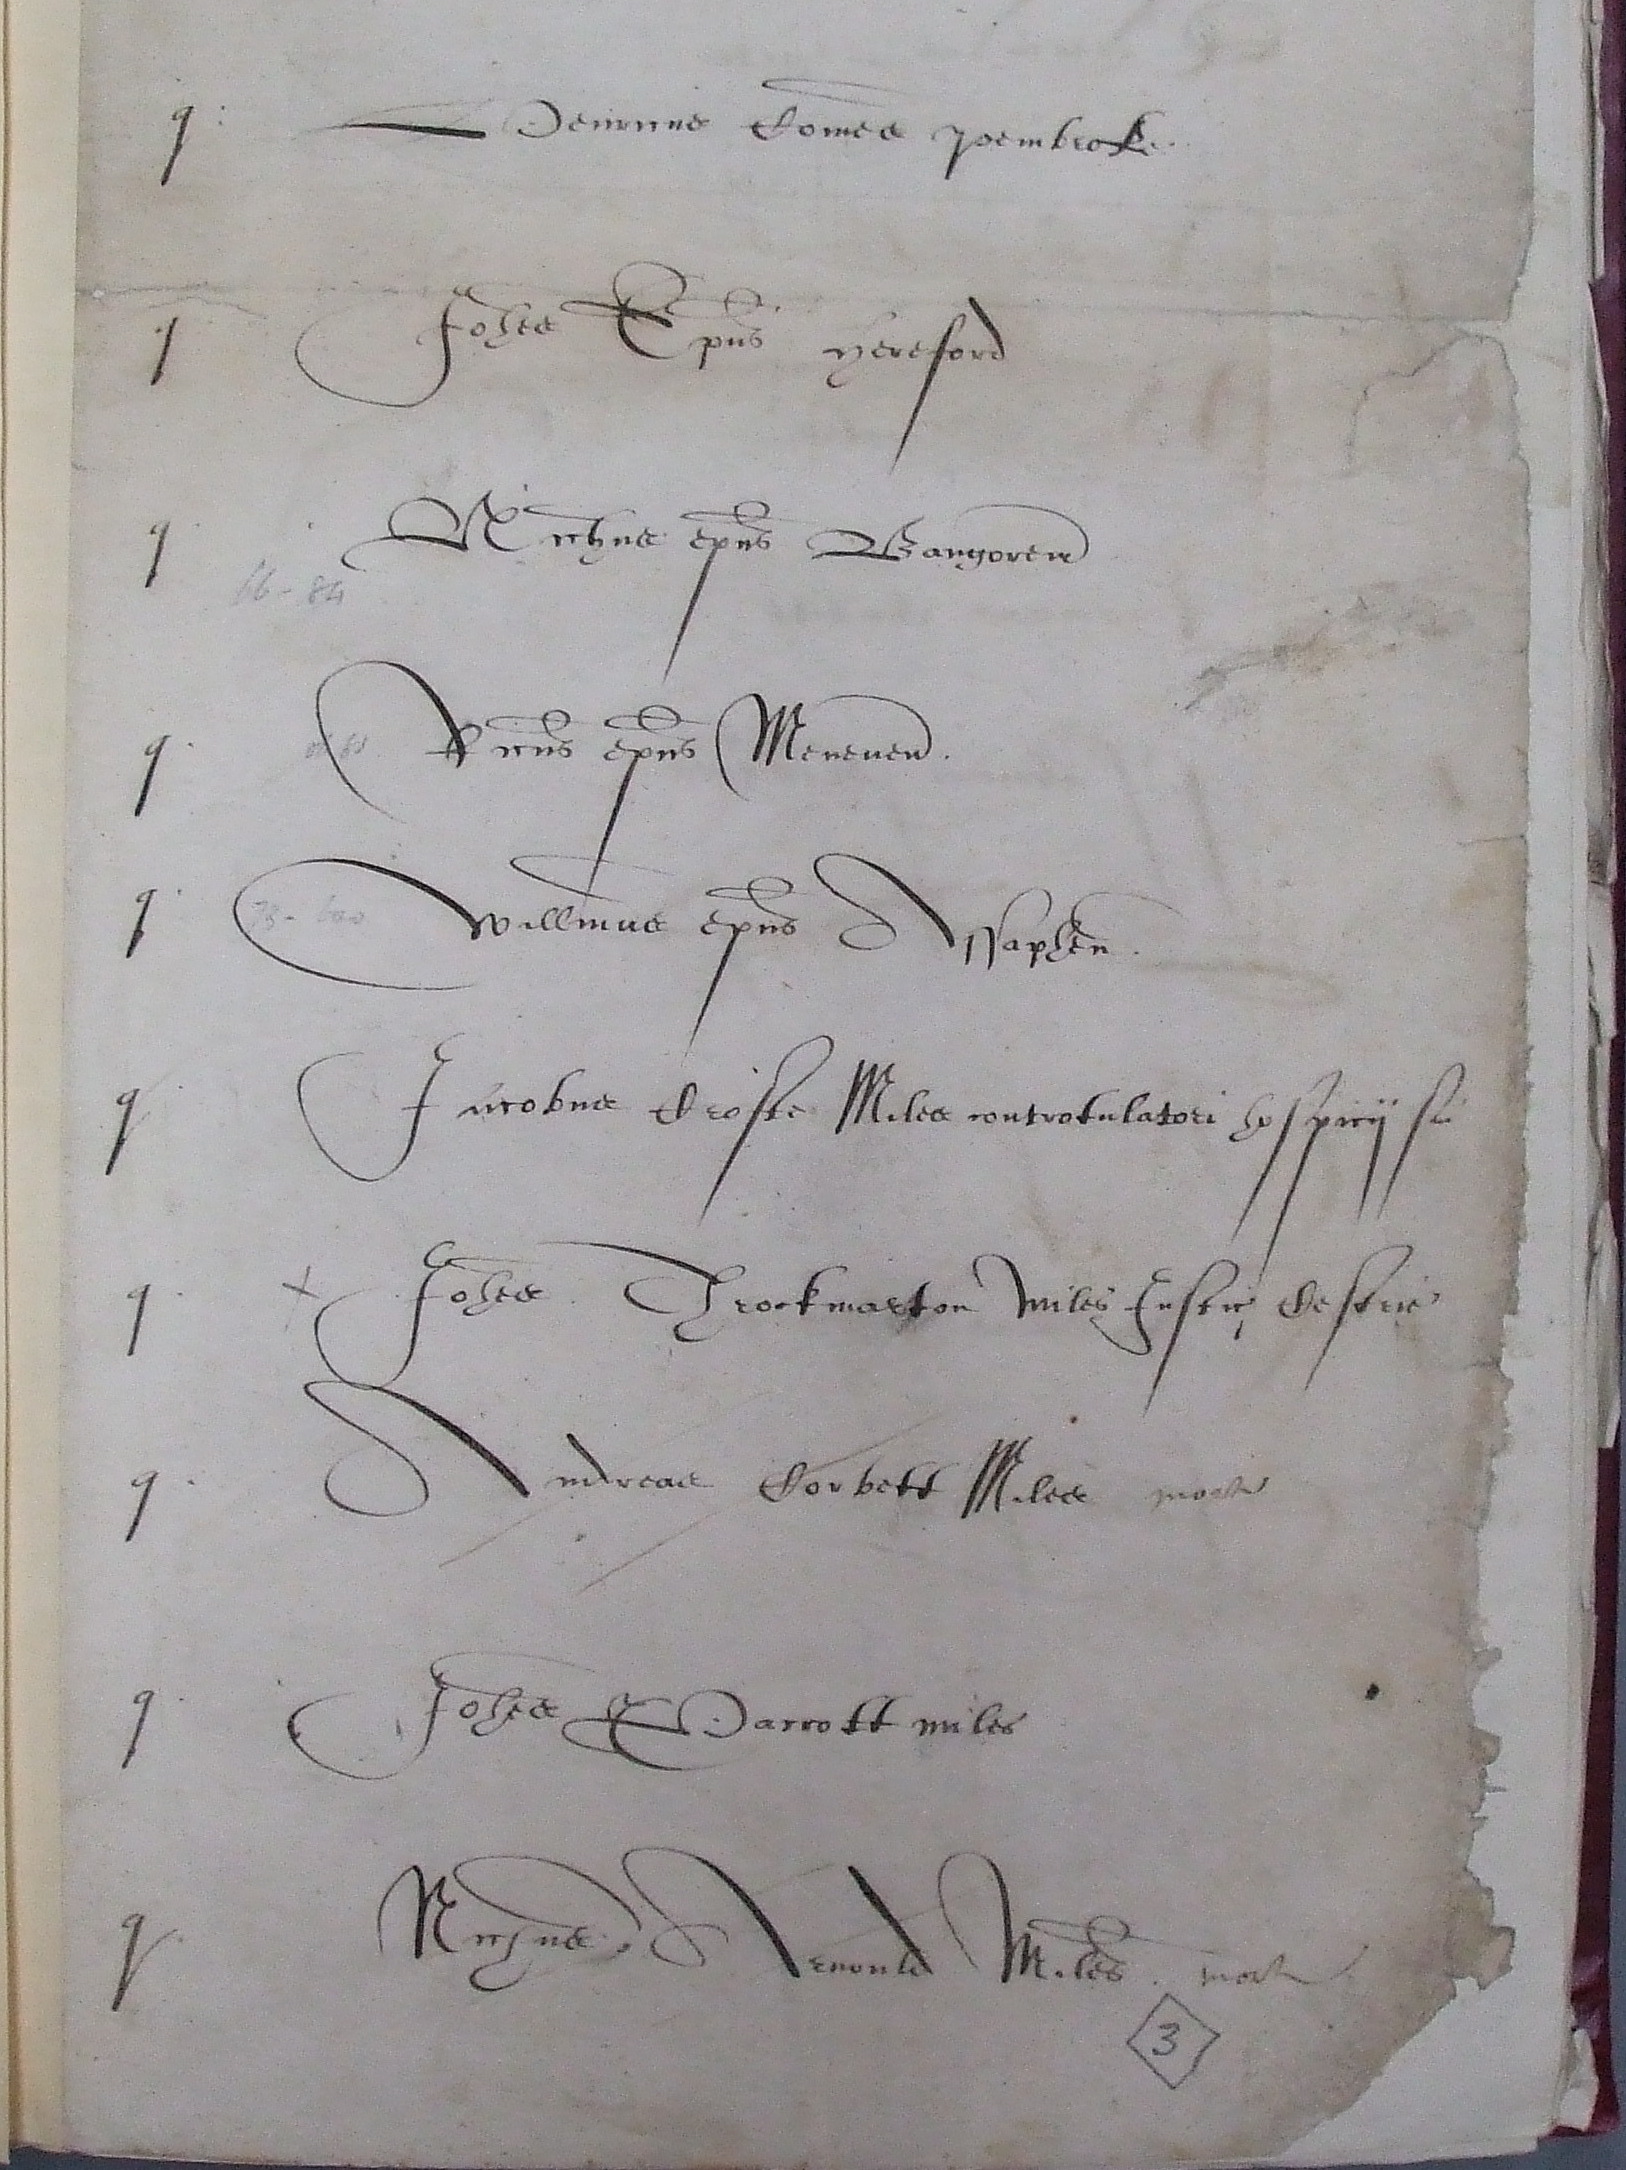 q: Henricus Comes Pembroke.
q Johes Epus Hereford
q Nichus epus Bangoren
66 - 84
q. Ricus epus Meneven.
q. Willmus epus Assaphen.
q Jacobus Crofte Miles controtulatori hospicij sui
q. x Johes Throckmarton miles Justic Cestrie
q. Andreas Corbett Miles mort
q. Johes Parrott miles
q. Nichus Arnould Miles. mort
3